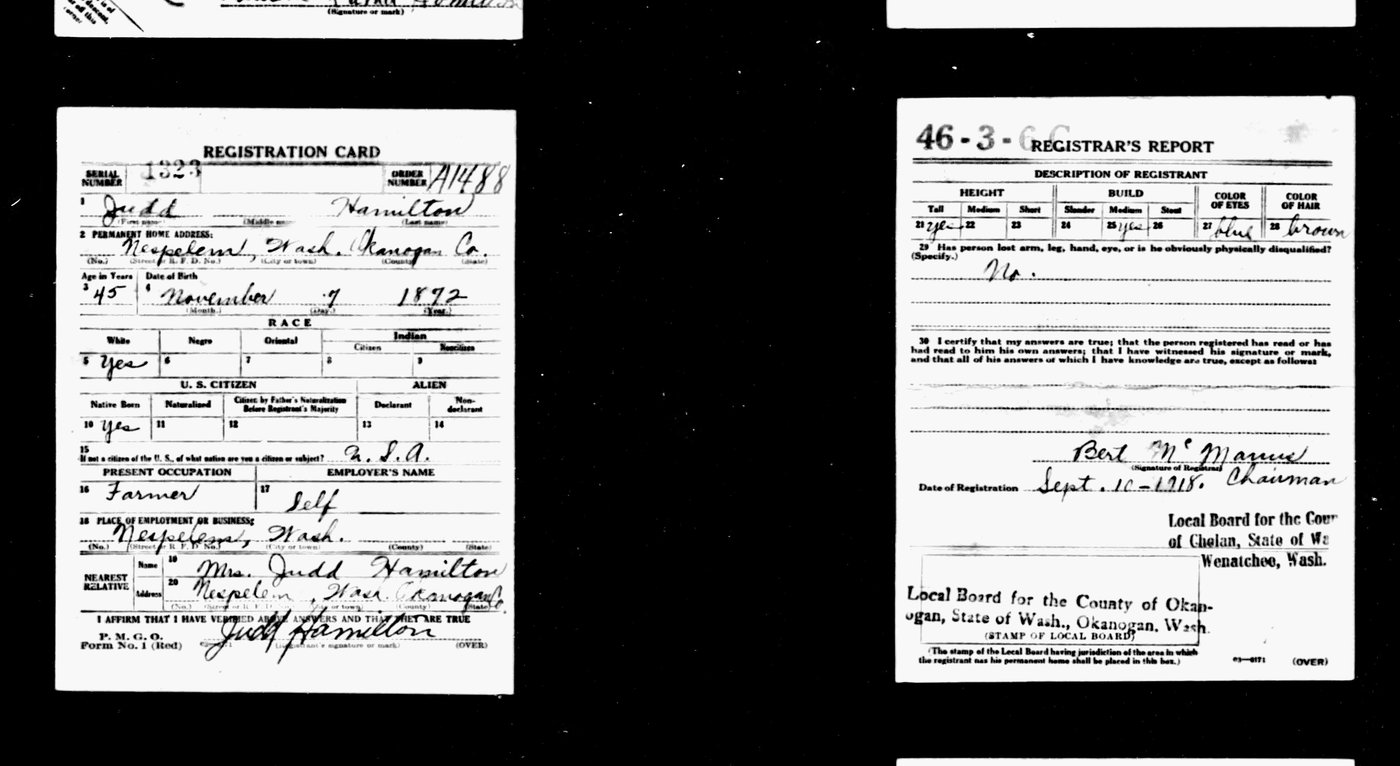 (Signature or mark)
REGISTRATION CARD
SERIAL NUMBER 1323 ORDER NUMBER A1488
1 Judd Hamilton
(First name) (Middle name) (Last name)
2 PERMANENT HOME ADDRESS:
Nespelem, Wash. Okanogan Co.
(No.) (Street or R. F. D. No.) (City or town) (County) (State)
Age in Years Date of Birth
3 45 4 November 7 1872
(Month.) (Day.) (Year.)
RACE
White Negro Oriental Indian
Citizen Noncitizen
5 Yes 6 7 8 9
U. S. CITIZEN ALIEN
Native Born Naturalized Citizen by Father's Naturalization Before Registrant's Majority Declarant Non-declarant
10 Yes 11 12 13 14
15 If not a citizen of the U. S., of what nation are you a citizen or subject? U. S. A.
PRESENT OCCUPATION EMPLOYER'S NAME
16 Farmer 17 Self
18 PLACE OF EMPLOYMENT OR BUSINESS:
Nespelem, Wash.
(No.) (Street or R. F. D. No.) (City or town) (County) (State)
NEAREST RELATIVE Name 19 Mrs. Judd Hamilton
Address 20 Nespelem, Wash. Okanogan Co.
(No.) (Street or R. F. D. No.) (City or town) (County) (State)
I AFFIRM THAT I HAVE VERIFIED ABOVE ANSWERS AND THAT THEY ARE TRUE
P. M. G. O.
Form No. 1 (Red) Judd Hamilton
(Registrant's signature or mark) (OVER)
46-3-6 C
REGISTRAR'S REPORT
DESCRIPTION OF REGISTRANT
HEIGHT BUILD COLOR OF EYES COLOR OF HAIR
Tall Medium Short Slender Medium Stout
21 yes 22 23 24 25 yes 26 27 blue 28 brown
29 Has person lost arm, leg, hand, eye, or is he obviously physically disqualified?
(Specify.)
No.
30 I certify that my answers are true; that the person registered has read or has
had read to him his own answers; that I have witnessed his signature or mark,
and that all of his answers of which I have knowledge are true, except as follows:
Bert McManus
(Signature of Registrar)
Chairman
Date of Registration Sept. 10-1918.
Local Board for the Coun
of Chelan, State of Wa
Wenatchee, Wash.
Local Board for the County of Okan-
ogan, State of Wash., Okanogan, Wash.
(STAMP OF LOCAL BOARD)
(The stamp of the Local Board having jurisdiction of the area in which
the registrant has his permanent home shall be placed in this box.)
03—6171 (OVER)